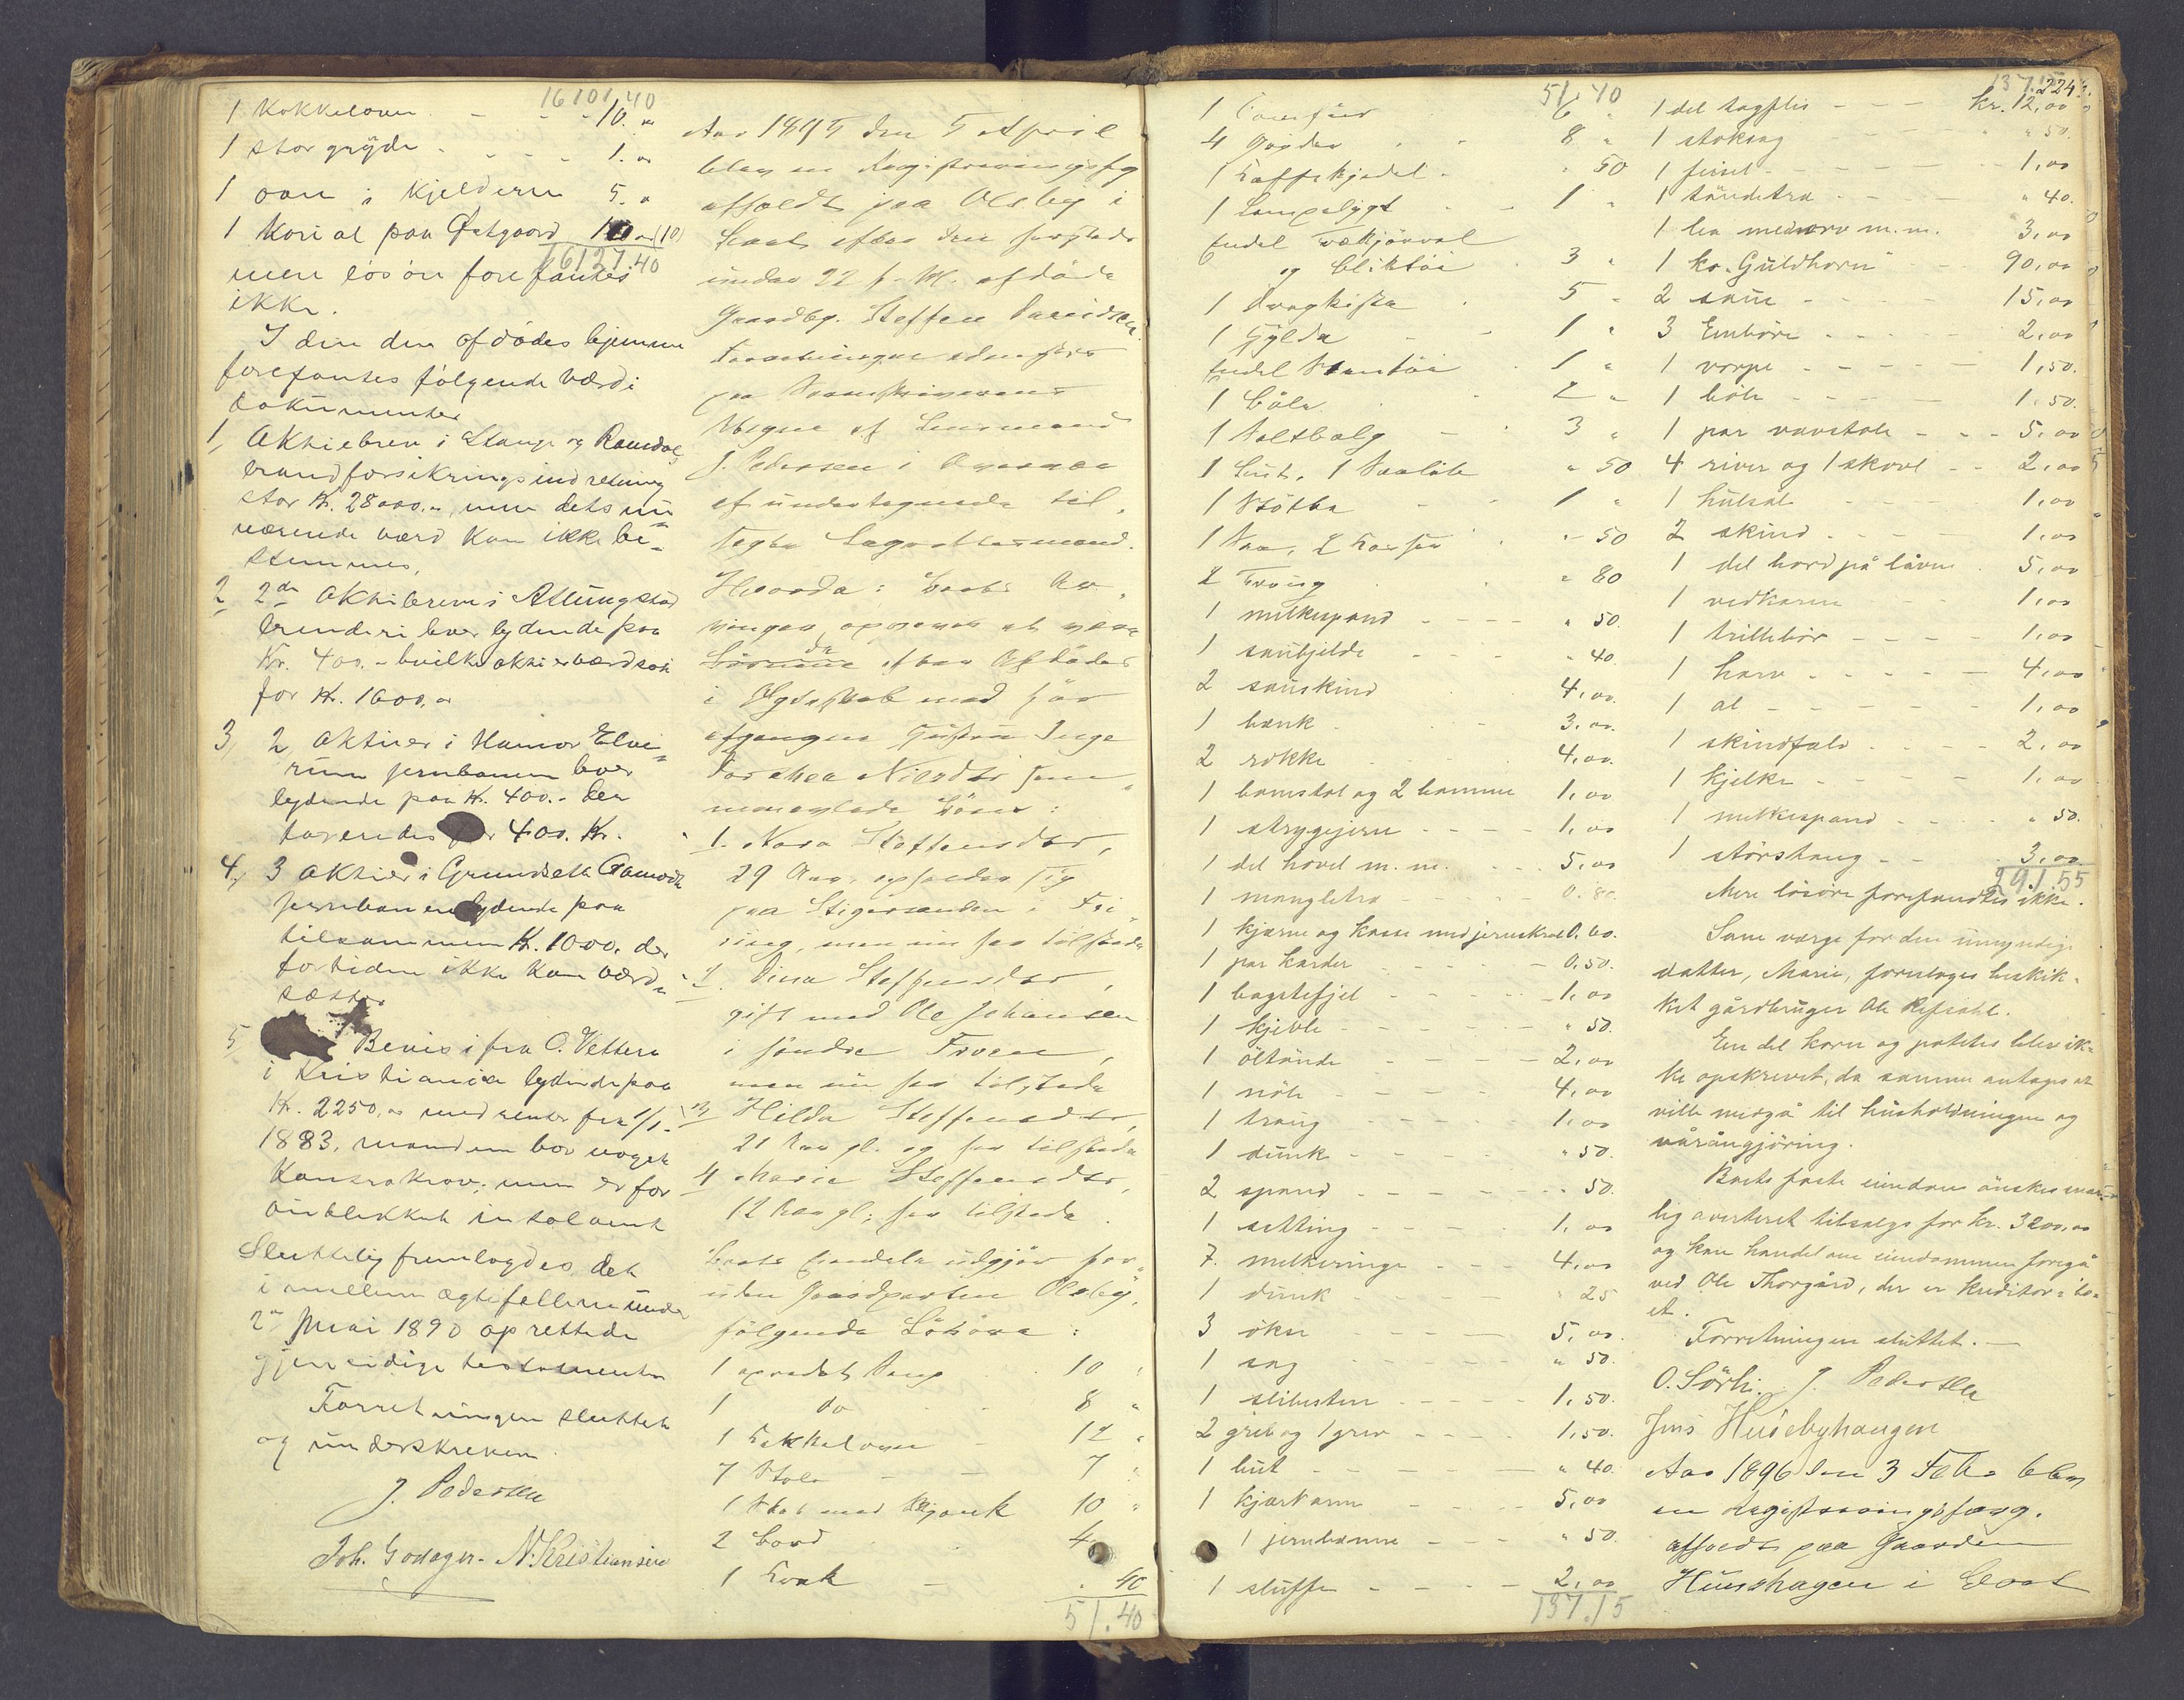 16101,40
1 Kokkeloven - - - 10. "
1 stor gryde - - - - 1. "
1 ovn i Kjelderen 5. "
1 Kariol paa Østgaard 10 " (10)
16127.40
mere løsøre forefantes
ikke.
I den den afdødes hjemme
forefantes følgende Værdi
dokumenter
1, Aktiebrev i Stange og Romedal
brandforsikringsindretning
stor Kr. 28000.-, men dets nu
værende værd Kan ikke be-
stemmes,
2, 2de Aktiebreve i Atlungstad
brenderi hver lydende paa
Kr. 400.- hvilke aktier værdsat
for Kr. 1600,00
3, 2 Aktier i Hamar Elve-
rum jernbanen hver
lydende paa Kr. 400.- der
taxeredes for 400. Kr.
4, 3 Aktier i Grundset Aamodt
jernbanen lydende paa
tilsammen Kr. 1000, der
for tiden ikke Kan værd-
sættes
5 Bevis i fra O. Vettern
i Kristiania lydende paa
Kr. 2250,00 med renter fra 1/1.
1883, manden bor noget
Kontrakrav, men er for
øieblikket insolvent
Sluttelig fremlagdes det
imellem ægtefællerne under
2n Mai 1890 oprettede
gjensidige testamente
Forretningen sluttet
og underskreven.
J. Pedersen
Joh. Godager - N. Kristiansen
Aar 1895 den 5 April
blev en Registreringsfg
afholdt paa Olsby i
Boet efter den
under 22 f. M. afdøde
Gaardbg. Steffen Davidsen.
Forretningen udenføres
paa Sorenskriverens
Vegne af Lensmand
J. Pedersen i Overvær
af undertegnede til-
kaldte Lagrettesmænd.
Hvorda: Boets Ar-
vinger opgaves at være
Børnene efter Afdøde
i Ægteskab med før
afgangne Hustru Inge
Dorthea Nilsdtr som
1. Nora Steffensdtr,
29 Aar, opholder sig
paa Stigersanden i
men nu her tilstede
2. Dina Steffensdtr,
gift med Ole Johansen
i søndre Froen,
men nu her tilstede
3, Hilda Steffensdtr,
21 Aar gl. og her tilstede
4 Marie Steffensdtr,
12 Aar gl., her tilstede.
Boets Eiendele udgjør for-
uden Gaardparten Olsby,
følgende Løsøre:
1 opredet Seng 10 "
1 do 8 "
1 Kakkelovn - 12 "
7 Stole - - 7 "
1 Skab med Skjænk 10 "
2 Bord 4
1 Krak - " 40
51.40
51.40
1 Komfur 6 "
4 Gryder 8 "
1 Kaffekjedel - " 50
1 Lampelygt - - 1 "
Endel Trækjørrel
og Bliktøi 3 "
1 Dragkiste 5 "
1 Hylde - 1 "
Endel Stentøi 1 "
1 Bøle 2 "
1 Saltbalg - 3 "
" 50
1 Støtte - 1 "
" 50
2 Traug " 80
1 melkespand - - - - " 50.
1 saubjelde - - - " 40.
2 sauskind 4,00.
1 bænk - - - 3,00.
2 rokke - - - - - 4,00.
1 bomstol og 2 bomme 1,00
1 strygejern - - - - 1,00
1 del høvel m. m. - - - 5,00
1 mangletræ - - - - - 0.80.
1 kjærne og kasse med jernskrot 0.60.
1 par karder - - - - 0,50.
1 bagstefjel - - - - - 1,00
1 kjevle - - - - - - " 50.
1 øltønde - - - - - 2,00
1 nøle - - - - - - 4,00
1 traug - - - - - - 1,00
1 dunk - - - - - " 50.
2 spand - - - - - - - " 50.
1 setting - - - - - 1,00
7. melkeringe - - - 4,00
1 dunk - - - - - " 25
3 økse - - - - - 5,00.
1 sag - - - - - - " 50.
1 slibesten - - - - - 1,50.
2 greb og 1 grev - - - - 1,50.
1 lut - - - - - - " 40.
1 kjærvarm - - - - - 5,00
1 jernhamre - - - - " 50.
1 sluffe - - - - 2,00
137.15
137.15 224.
1 del tagflis - - - Kr. 12,00
1 stoksag - - - - - - " 50.
1 feisel - - - - - - - 1,00
1 tøndetræ - - - - - " 40.
1 lea med orv m.m. 3,00
1 ko "Guldhorn" - - 90,00
2 saue - - - - - 15,00
3 Embøre - - - - - 2,00
1 vorpe - - - - - 1,50.
1 bøle - - - - - 1.50.
1 par vævstole - - - 5,00
4 river og 1 skovl - - 2,00
1 hulsøle - - - 1,00
2 skind - - - - 1,00
1 del bord på låven . 5,00
1 vedkaren - - 1,00
1 trillebør - - - - 1,00
1 harv - - - - - 4,00
1 al - - - - - 1,00
1 skindfald - - - - 2,00
1 kjelke - - - - - 1,00
1 melkespand - - - - " 50.
1 størshaug - - - 3,00
291.55
Mere løsøre forefandtes ikke.
Som værge for den umyndige
datter, Marie, foresloges beskik-
ket gårdbruger Ole Refsahl.
En del korn og poteter blev ik-
ke opskrevet, da samme antages at
ville medgå til husholdningen og
våronngjøring.
Boets faste eiendom ønskes snare-
lig averteret tilsalgs for kr. 3200,00
og kan handel om eiendommen foregå
ved Ole Thorgård, der er kreditor i bo-
et.
Forretningen sluttet. —
O. Sörli. J. Pedersen
Jens Husebyhaugen
Aar 1896 den 3 Feb. blev
en Registreringsforrg.
afholdt paa Gaarden
Hunshagen i Boet